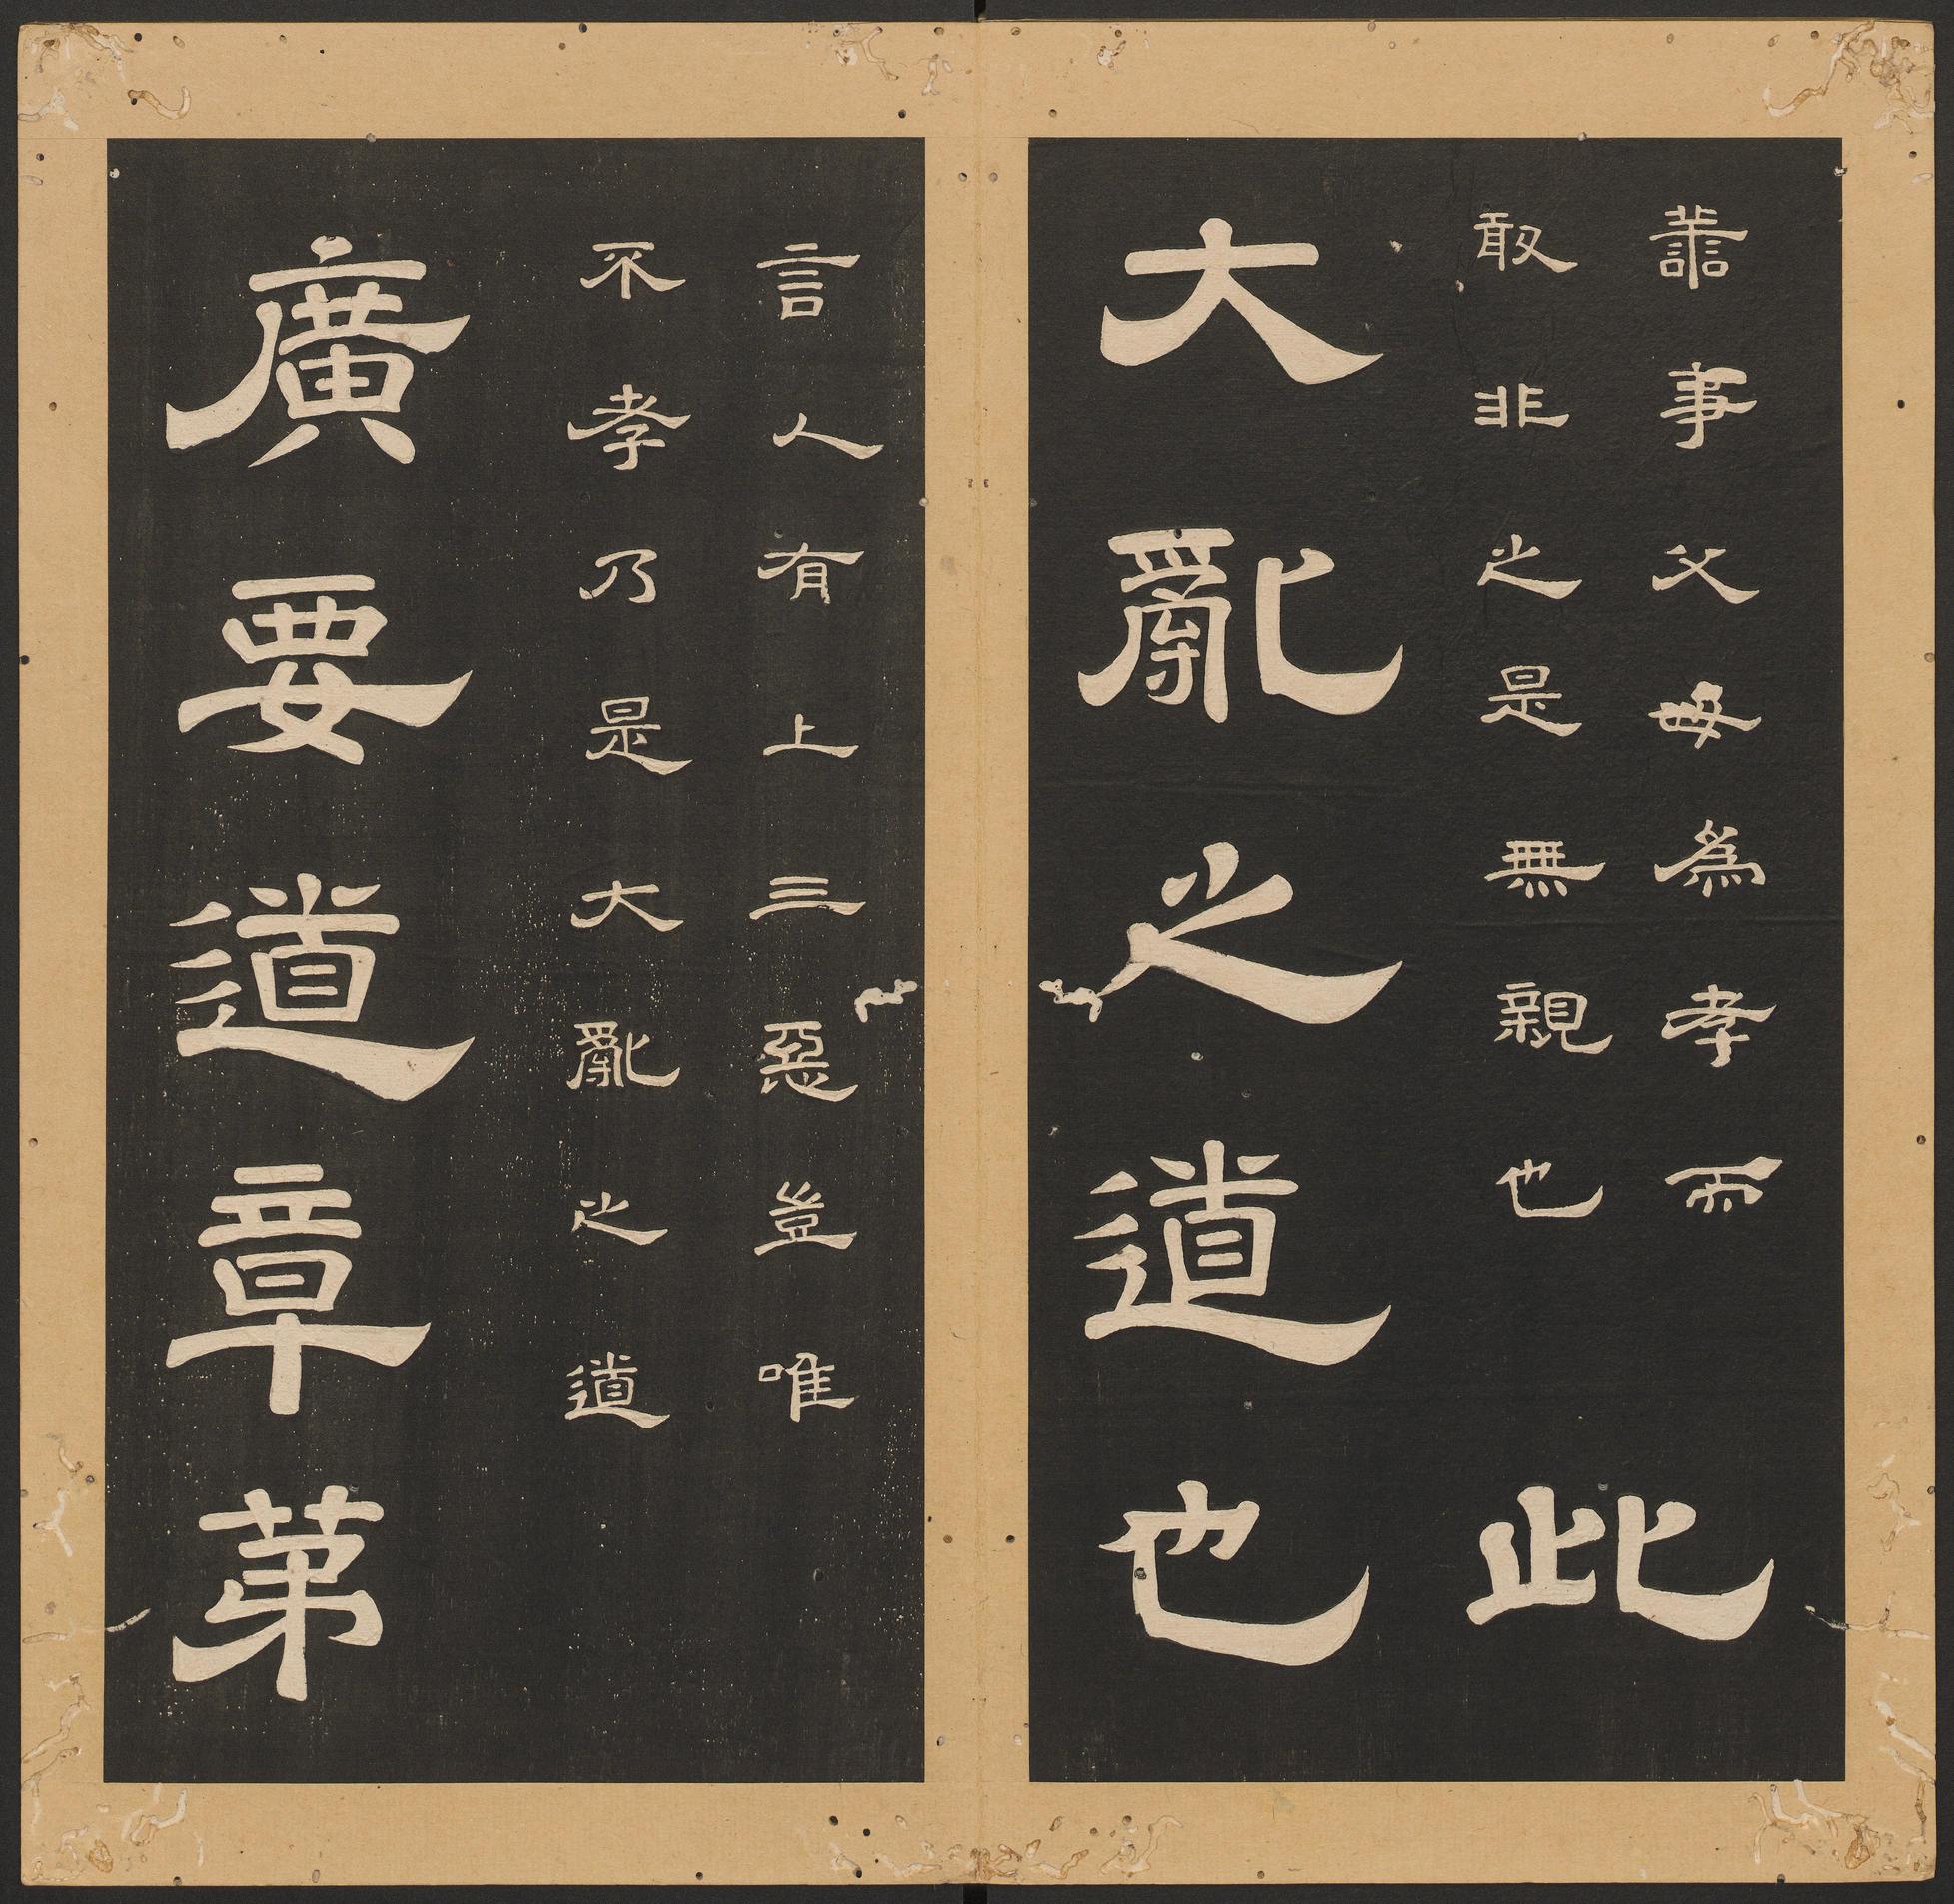 譱事父母為孝而
敢非之是無親也
此
大亂之道也
言人有上三惡豈唯
不孝乃是大亂之道
廣要道章苐